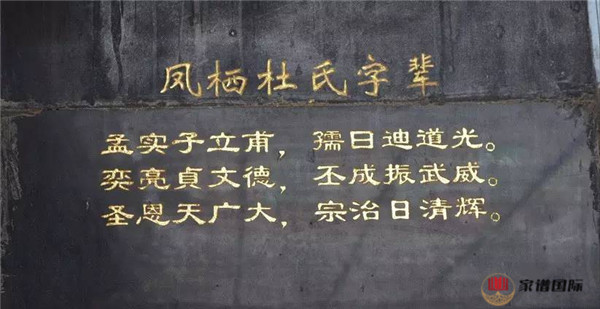 凤栖杜氏字辈
孟实子立甫，孺日迪道光。
奕亮貞文德，丕成振武威。
圣恩天广大，宗治日清辉。
家谱国际